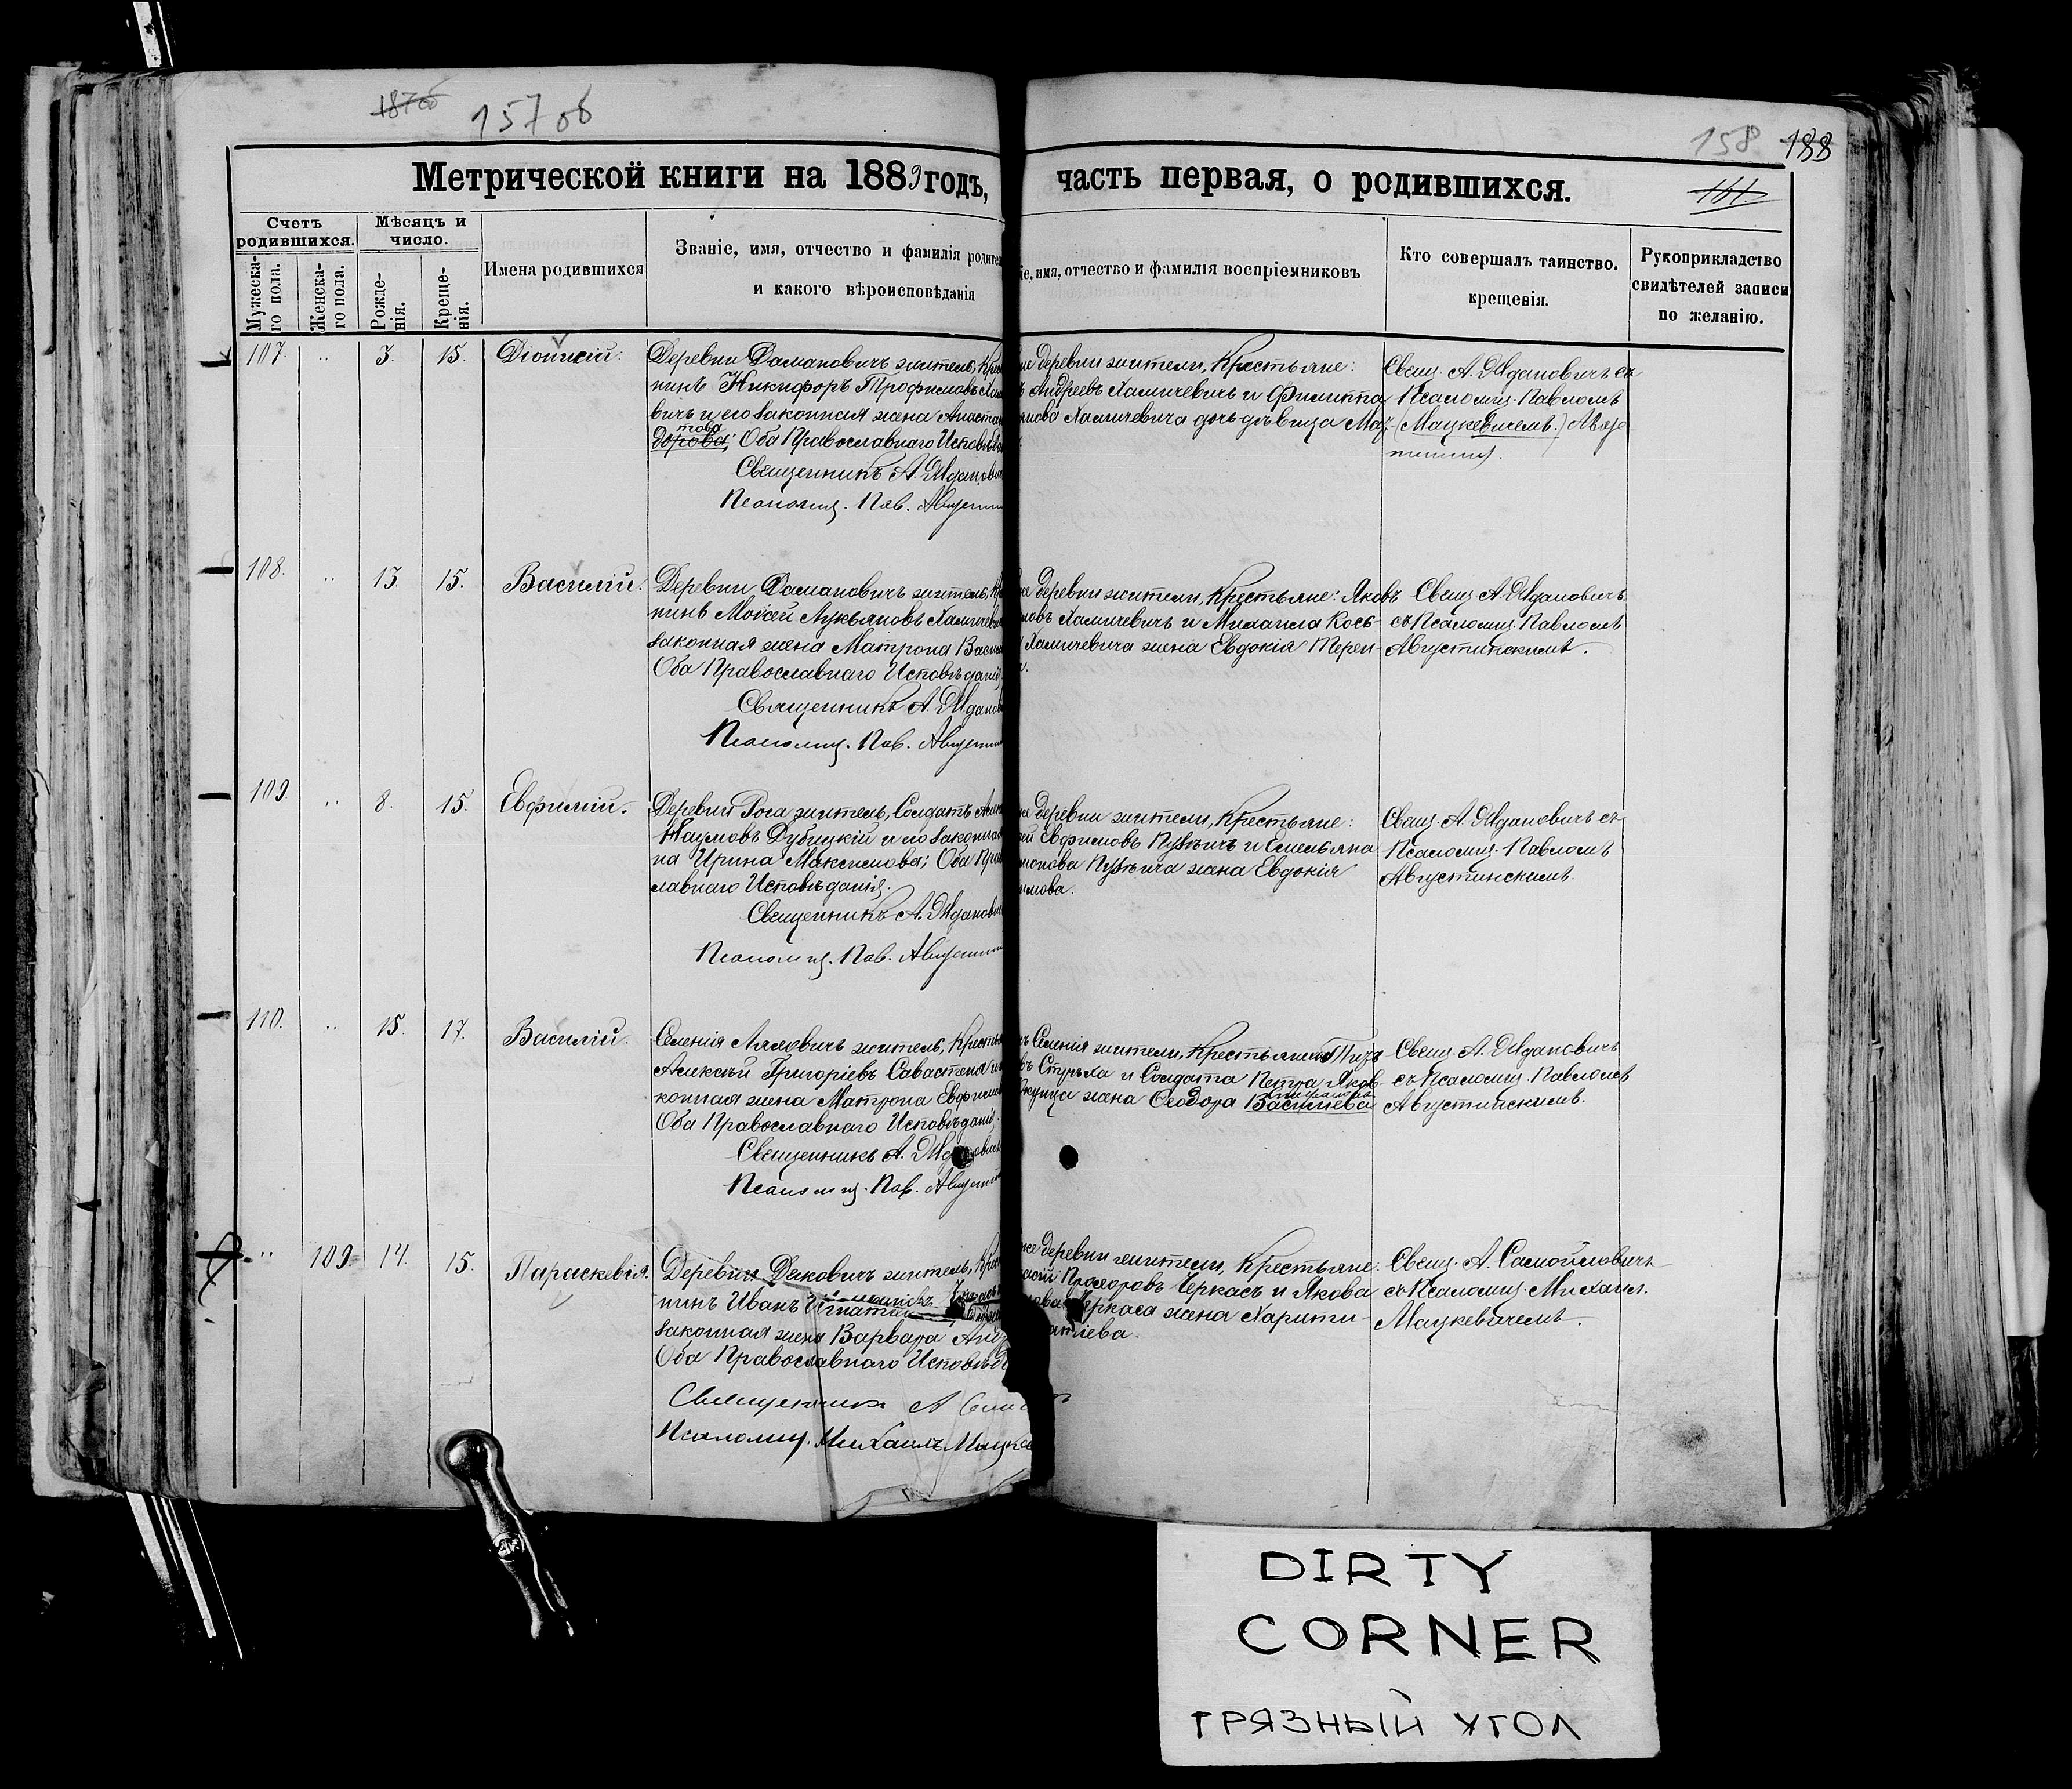 187 об
157 об
158 188
Метрической книги на 1889 годъ,
часть первая, о родившихся.
161.
Счетъ родившихся.
Мѣсяцъ и число.
Мужеска-го пола.
Женска-го пола.
Рожде-нія.
Креще-нія.
Имена родившихся
Званіе, имя, отчество и фамилія родите
и какого вѣроисповѣданія
іе, имя, отчество и фамилія воспріемниковъ
Кто совершалъ таинство.
крещенія.
Рукоприкладство
свидѣтелей записи
по желанію.
107. " 3. 15. Діонисій.
Деревни Дамановичъ житель, Крес
нинъ Никифоръ Трофимовъ Хам
вичъ и его законная жена Анаста
това
дорова; Оба Православнаго Исповѣда
Священникъ А. Жданови
Псаломщ. Пав. Августин
же деревни жители, Крестьяне:
ъ Андреевъ Хамичевичъ и Филиппа
Хамичевича дочь дѣвица Ма
Свящ. А. Ждановичъ съ
Псаломщ. Павломъ
(Мацкевичемъ.) Авгус
108. " 13. 15. Василій.
Деревни Дамановичъ житель, Кр
нинъ Моісей Лукьяновъ Хамичеви
законная жена Матрона Васил
Оба Православнаго Исповѣданія.
Священникъ А. Жданов
Псаломщ. Пав. Августин
же деревни жители, Крестьяне: Яковъ
новъ Хамичевичъ и Михаила Кось-
Хамичевича жена Евдокія Терен-
Свящ. А. Ждановичъ
съ Псаломщ. Павломъ
Августинскимъ.
109. " 8. 15. Евфимій.
Деревни Рога житель, Солдатъ
Наумовъ Дубицкій и его законная
на Ирина Максимова; Оба Прав
лавнаго Исповѣданія.
Священникъ А. Жданович
Псаломщ. Пав. Августин
же деревни жители, Крестьяне:
ей Евфимовъ Пузевичъ и Емельяна
жена Евдокія
имова.
Свящ. А. Ждановичъ съ
Псаломщ. Павломъ
Августинскимъ.
110. " 15. 17. Василій.
Селенія Ляховичъ житель, Кресть
Алексѣй Григоріевъ Савастеня и
конная жена Матрона Евфим
Оба Православнаго Исповѣданія.
Священникъ А. Ждановичъ
Псаломщ. Пав. Августин
Селенія жители, Крестьянинъ
въ Стрѣха и Солдата Петра Яков-
жена Ѳеодора Васильева
Свящ. А. Ждановичъ
съ Псаломщ. Павломъ
Августинскимъ.
" 109 14. 15. Параскевія.
Деревни Дяковичъ житель, Крес
нинъ Иванъ Игнатіи
законная жена Варвара Анд
Оба Православнаго Исповѣд
Священникъ А Само
Псаломщ. Михаилъ Мацке
же деревни жители, Крестьяне:
Прохоровъ Черкасъ и Якова
Черкаса жена Харити-
атіева.
Свящ. А. Самойловичъ
съ Псаломщ. Михаил.
Мацкевичемъ.
DIRTY
CORNER
ГРЯЗНЫЙ УГОЛ